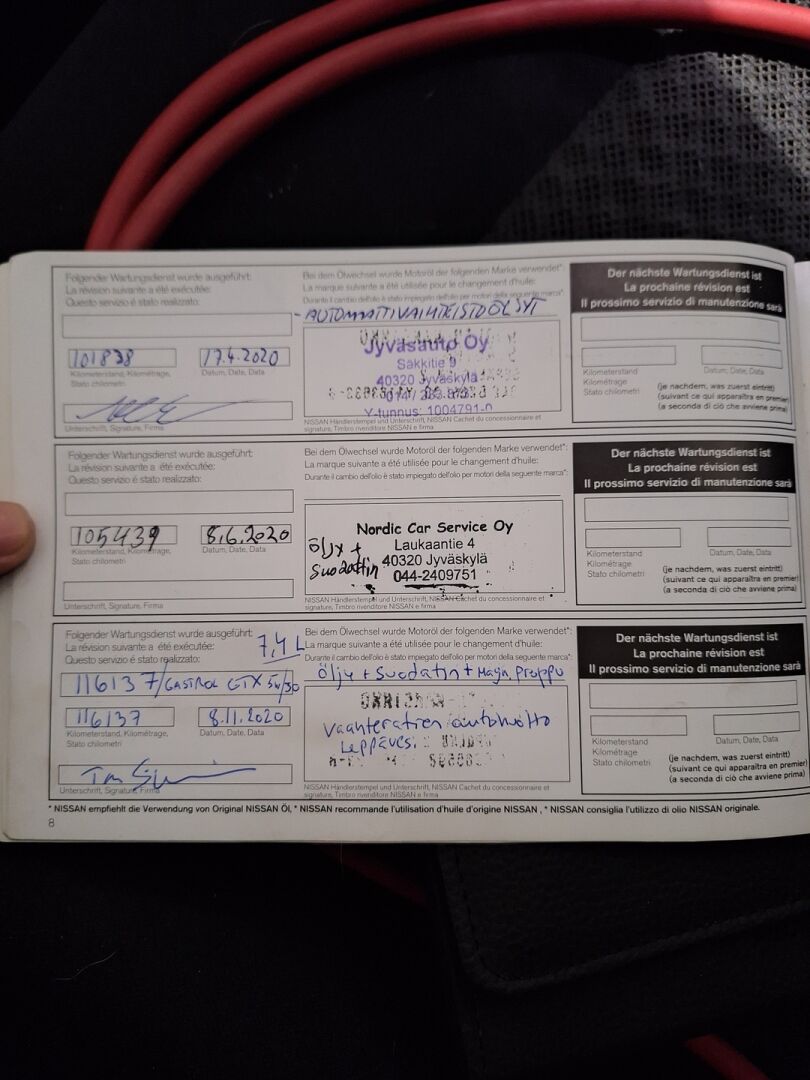 Folgender Wartungsdienst wurde ausgeführt:
La révision suivante a été exécutée:
Questo servizio é stato realizzato:
101838
17.4.2020
Kilometerstand, Kilométrage,
Stato chilometri
Datum, Date, Data
Unterschrift, Signature, Firma
Bei dem Ölwechsel wurde Motoröl der folgenden Marke verwendet*:
La marque suivante a été utilisée pour le changement d'huile:
Durante il cambio dell'olio è stato impiegato dell'olio per motori della seguente marca*:
- AUTOMAATTIVAIHTEISTOÖLJYT
Jyväsauto Oy
Sakkitie 9
40320 Jyväskylä
Y-tunnus: 1004791-0
NISSAN Händlerstempel und Unterschrift, NISSAN Cachet du concessionnaire et
signature, Timbro rivenditore NISSAN e firma
Der nächste Wartungsdienst ist
La prochaine révision est
Il prossimo servizio di manutenzione sarà
Kilometerstand
Kilométrage
Stato chilometri
Datum, Date, Data
(je nachdem, was zuerst eintritt)
(suivant ce qui apparaîtra en premier)
(a seconda di ciò che avviene prima)
Folgender Wartungsdienst wurde ausgeführt:
La révision suivante a été exécutée:
Questo servizio é stato realizzato:
105439
8.6.2020
Kilometerstand, Kilométrage,
Stato chilometri
Datum, Date, Data
Unterschrift, Signature, Firma
Bei dem Ölwechsel wurde Motoröl der folgenden Marke verwendet*:
La marque suivante a été utilisée pour le changement d'huile:
Durante il cambio dell'olio è stato impiegato dell'olio per motori della seguente marca*:
öljy +
suodattin
Nordic Car Service Oy
Laukaantie 4
40320 Jyväskylä
044-2409751
NISSAN Händlerstempel und Unterschrift, NISSAN Cachet du concessionnaire et
signature, Timbro rivenditore NISSAN e firma
Der nächste Wartungsdienst ist
La prochaine révision est
Il prossimo servizio di manutenzione sarà
Kilometerstand
Kilométrage
Stato chilometri
Datum, Date, Data
(je nachdem, was zuerst eintritt)
(suivant ce qui apparaîtra en premier)
(a seconda di ciò che avviene prima)
Folgender Wartungsdienst wurde ausgeführt:
La révision suivante a été exécutée:
Questo servizio é stato realizzato:
7,4 L
116137/CASTROL GTX 5w/30
116137
8.11.2020
Kilometerstand, Kilométrage,
Stato chilometri
Datum, Date, Data
Unterschrift, Signature, Firma
Bei dem Ölwechsel wurde Motoröl der folgenden Marke verwendet*:
La marque suivante a été utilisée pour le changement d'huile:
Durante il cambio dell'olio è stato impiegato dell'olio per motori della seguente marca*:
Öljy + Suodatin + Magn. proppu
Vaahteratien autohuolto
Leppävesi
NISSAN Händlerstempel und Unterschrift, NISSAN Cachet du concessionnaire et
signature, Timbro rivenditore NISSAN e firma
Der nächste Wartungsdienst ist
La prochaine révision est
Il prossimo servizio di manutenzione sarà
Kilometerstand
Kilométrage
Stato chilometri
Datum, Date, Data
(je nachdem, was zuerst eintritt)
(suivant ce qui apparaîtra en premier)
(a seconda di ciò che avviene prima)
* NISSAN empfiehlt die Verwendung von Original NISSAN Öl, * NISSAN recommande l'utilisation d'huile d'origine NISSAN , * NISSAN consiglia l'utilizzo di olio NISSAN originale.
8